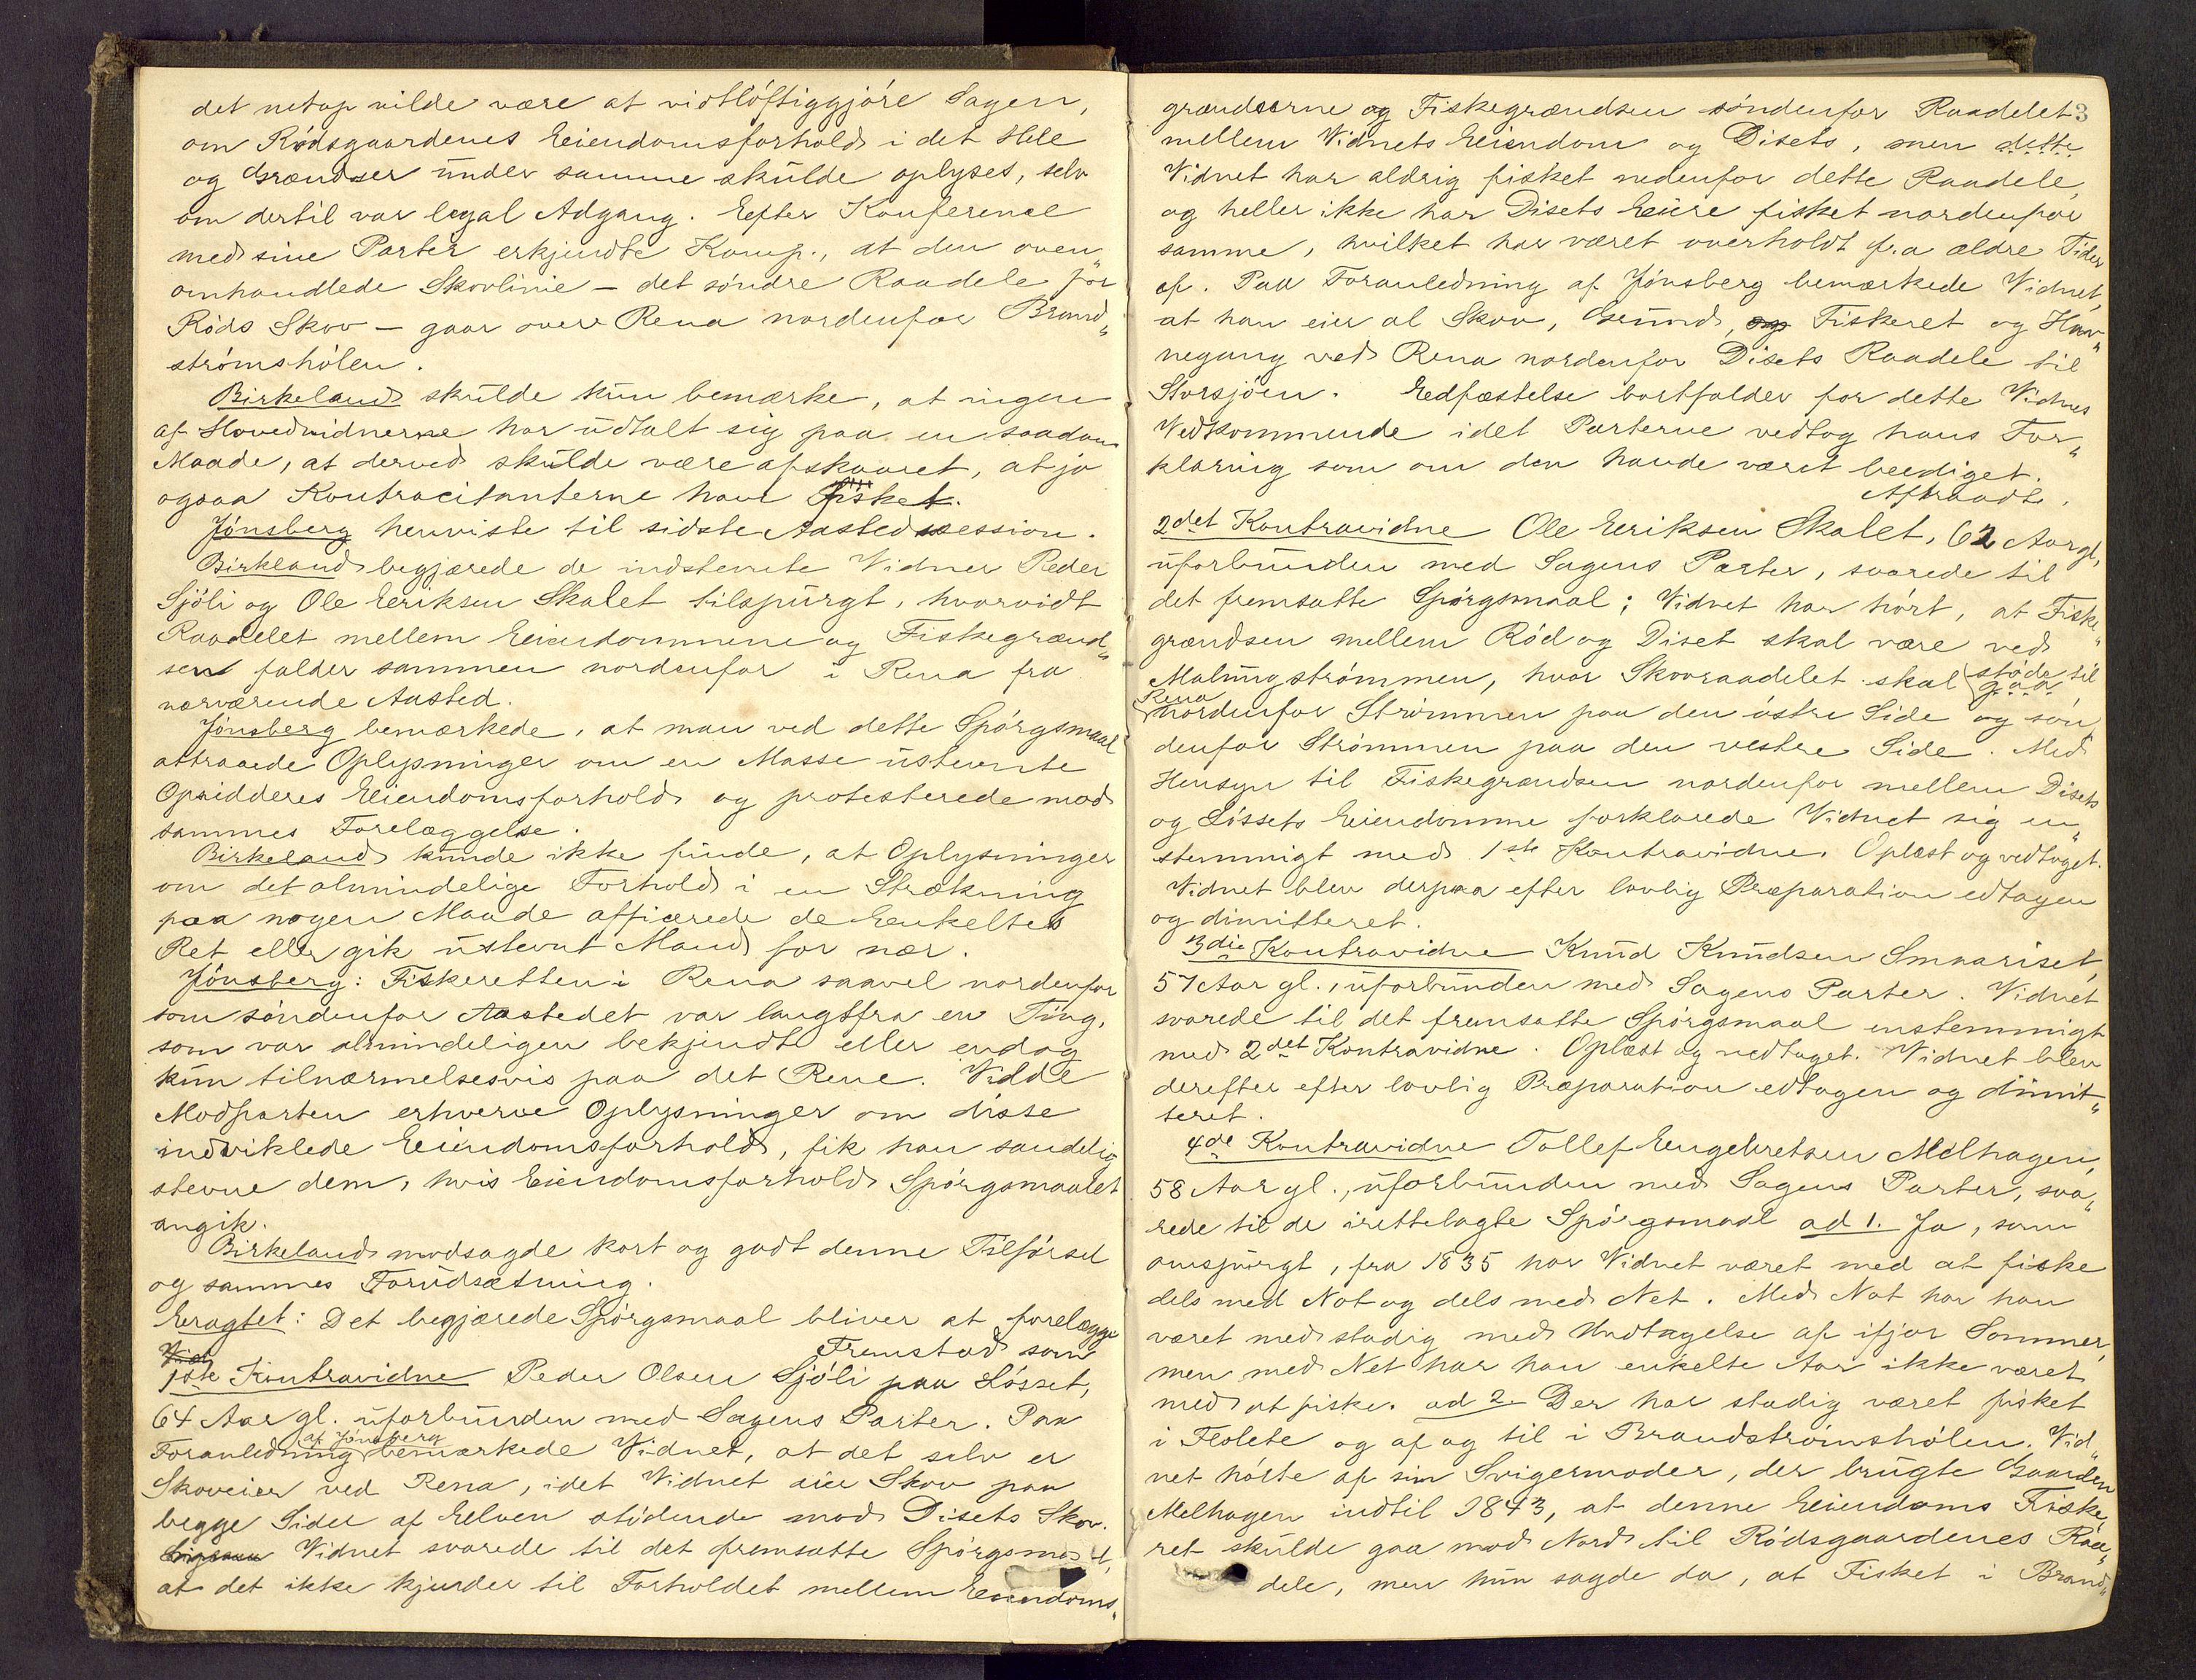 det netop vilde være at vidtløftiggjøre Sagen,
om Rødsgaardenes Eiendomsforhold i det Hele
og Grændser under samme skulde oplyses, selv
om dertil var legal Adgang. Efter Konference
med sine Parter erkjendte Komp., at den oven„
omhandlede Skovlinie – det søndre Raadele for
Røds Skov – gaar over Rena nordenfor Brand„
strømshølen.
Birkeland skulde kun bemærke, at ingen
af Hovedvidnerne har udtalt sig paa en saadan
Maade, at derved skulde være afskaaret, at jo
ogsaa Kontracitanterne have fisket.
Jønsberg henviste til sidste Aastedssession.
Birkeland begjærede de indstevnte Vidner Peder
Sjøli og Ole Eeriksen Skalet tilspurgt, hvorvidt
Raadelet mellem Eiendommene og Fiskegrænd„
sen falder sammen nordenfor i Rena fra
nærværende Aasted.
Jønsberg bemærkede, at man ved dette Spørgsmaal
attraaede Oplysninger om en Masse ustevnte
Opsidderes Eiendomsforhold og protesterede mod
sammes Forelæggelse.
Birkeland kunde ikke finde, at Oplysninger
om det almindelige Forhold i en Strækning
paa nogen Maade afficerede de Enkeltes
Ret eller gik ustevnt Mand for nær.
Jønsberg: Fiskeretten i Rena saavel nordenfor
som søndenfor Aastedet var langtfra en Ting,
som var almindeligen bekjendt eller endog
kun tilnærmelsesvis paa det Rene. Vilde
Modparten erhverve Oplysninger om disse
indviklede Eiendomsforhold, fik han sandelig
stevne dem, hvis Eiendomsforhold Spørgsmaalet
angik.
Birkeland modsagde kort og godt denne Tilførsel
og sammes Forudsætning.
Eragtet: Det begjærede Spørgsmaal bliver at forelægge
Fremstod som
1ste Kontravidne Peder Olsen Sjøli paa Løsset,
64 Aar gl. uforbunden med Sagens Parter. Paa
Foranledning af Jønsberg bemærkede Vidnet, at det selv er
Skoveier ved Rena, idet Vidnet eier Skov paa
begge Sider af Elven stødende mod Disets Skov.
Vidnet svarede til det fremsatte Spørgsmaal,
at det ikke kjender til Forholdet mellem Eiendoms„
grændserne og Fiskegrændsen søndenfor Raadelet 3
mellem Vidnets Eiendom og Disets, men dette
Vidnet har aldrig fisket nedenfor dette Raadele,
og heller ikke har Disets Eiere fisket nordenfor
samme, hvilket har været overholdt fra ældre Tider
af. Paa Foranledning af Jønsberg bemærkede Vidnet,
at han eier al Skov, Grund, og Fiskeret og Hav„
negang ved Rena nordenfor Disets Raadele til
Storsjøen. Eedfæstelse bortfalder for dette Vidnes
Vedkommende idet Parterne vedtog hans For„
klaring som om den havde været beediget.
Aftraadt.
2det Kontravidne Ole Eeriksen Skalet, 62 Aar gl,
uforbunden med Sagens Parter, svarede til
det fremsatte Spørgsmaal; Vidnet har hørt, at Fiske„
grændsen mellem Rød og Diset skal være ved
Malungstrømmen, hvor Skovraadelet skal gaa støde til
Rena nordenfor Strømmen paa den østre Side og søn„
denfor Strømmen paa den vestre Side. Med
Hensyn til Fiskegrændsen nordenfor mellem Disets
og Løssets Eiendomme forklarede Vidnet sig en„
stemmigt med 1ste Kontravidne. Oplæst og vedtaget.
Vidnet blev derpaa efter lovlig Præparation edtagen
og dimitteret.
3die Kontravidne Knud Knudsen Smaariset,
57 Aar gl., uforbunden med Sagens Parter. Vidnet
svarede til det fremsatte Spørgsmaal enstemmigt
med 2det Kontravidne. Oplæst og vedtaget. Vidnet blev
derefter efter lovlig Præparation edtagen og dimit„
teret.
4de Kontravidne Tollef Engebretsen Melhagen,
58 Aar gl., uforbunden med Sagens Parter, sva„
rede til de irettelagte Spørgsmaal ad 1. Ja, som
omspurgt, fra 1835 har Vidnet været med at fiske
dels med Not og dels med Net. Med Not har han
været med stadig med Undtagelse af ifjor Sommer,
men med Net har han enkelte Aar ikke været
med at fiske. ad 2. Der har stadig været fisket
i Flolete og af og til i Brandstrømshølen. Vid„
net hørte af sin Svigermoder, der brugte Gaarden
Melhagen indtil 1843, at denne Eiendoms Fiske„
ret skulde gaa mod Nord til Rødsgaardenes Raa„
dele, men hun sagde da, at Fisket i Brand„